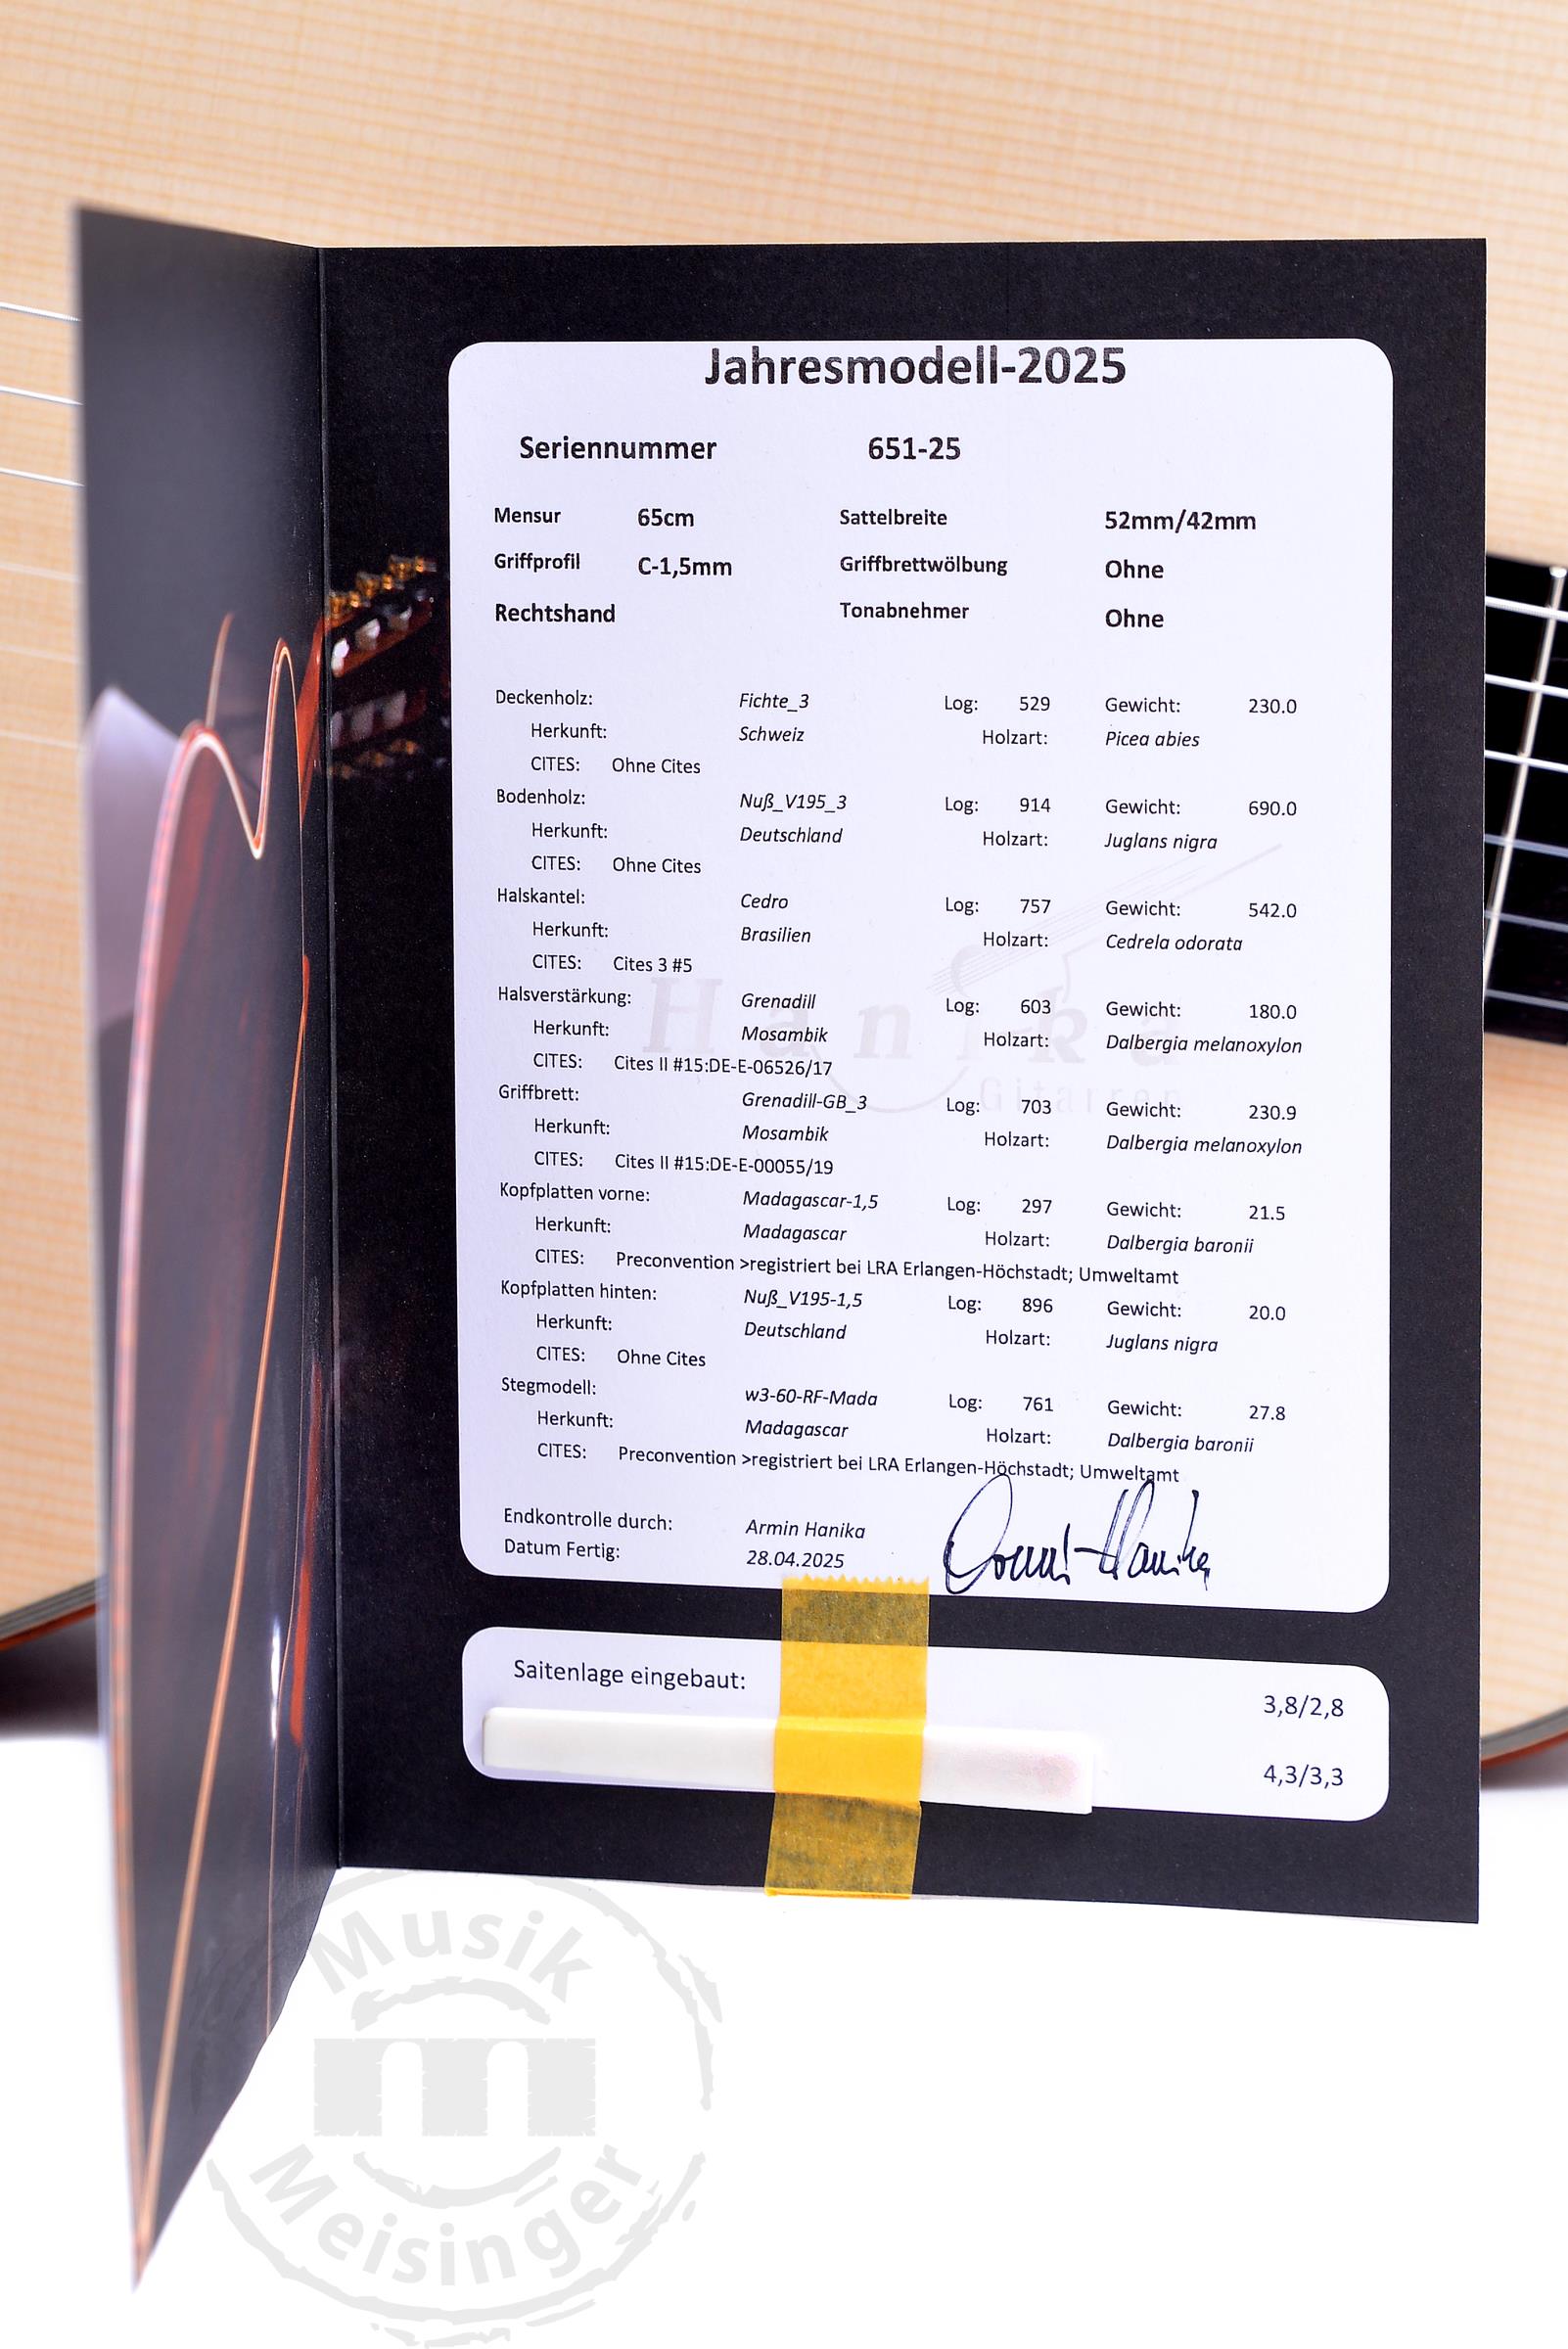 Jahresmodell-2025
Seriennummer 651-25
Mensur 65cm Sattelbreite 52mm/42mm
Griffprofil C-1,5mm Griffbrettwölbung Ohne
Rechtshand Tonabnehmer Ohne
Deckenholz: Fichte_3 Log: 529 Gewicht: 230.0
Herkunft: Schweiz Holzart: Picea abies
CITES: Ohne Cites
Bodenholz: Nuß_V195_3 Log: 914 Gewicht: 690.0
Herkunft: Deutschland Holzart: Juglans nigra
CITES: Ohne Cites
Halskantel: Cedro Log: 757 Gewicht: 542.0
Herkunft: Brasilien Holzart: Cedrela odorata
CITES: Cites 3 #5
Halsverstärkung: Grenadill Log: 603 Gewicht: 180.0
Herkunft: Mosambik Holzart: Dalbergia melanoxylon
CITES: Cites II #15:DE-E-06526/17
Griffbrett: Grenadill-GB_3 Log: 703 Gewicht: 230.9
Herkunft: Mosambik Holzart: Dalbergia melanoxylon
CITES: Cites II #15:DE-E-00055/19
Kopfplatten vorne: Madagascar-1,5 Log: 297 Gewicht: 21.5
Herkunft: Madagascar Holzart: Dalbergia baronii
CITES: Preconvention >registriert bei LRA Erlangen-Höchstadt; Umweltamt
Kopfplatten hinten: Nuß_V195-1,5 Log: 896 Gewicht: 20.0
Herkunft: Deutschland Holzart: Juglans nigra
CITES: Ohne Cites
Stegmodell: w3-60-RF-Mada Log: 761 Gewicht: 27.8
Herkunft: Madagascar Holzart: Dalbergia baronii
CITES: Preconvention >registriert bei LRA Erlangen-Höchstadt; Umweltamt
Endkontrolle durch: Armin Hanika
Datum Fertig: 28.04.2025
Armin Hanika
Hanika
Gitarren
Saitenlage eingebaut: 3,8/2,8
4,3/3,3
Musik
m
Meisinger